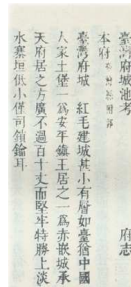 臺灣府城池考 府志
本府
臺灣府城 紅毛建城甚小有層如臺猶中國
人家土堡一爲安平鎮王居之一爲赤嵌城承
天府居之方廣不過百十丈而堅牢特勝上淡
水寨垣低小僅可銷鑰耳